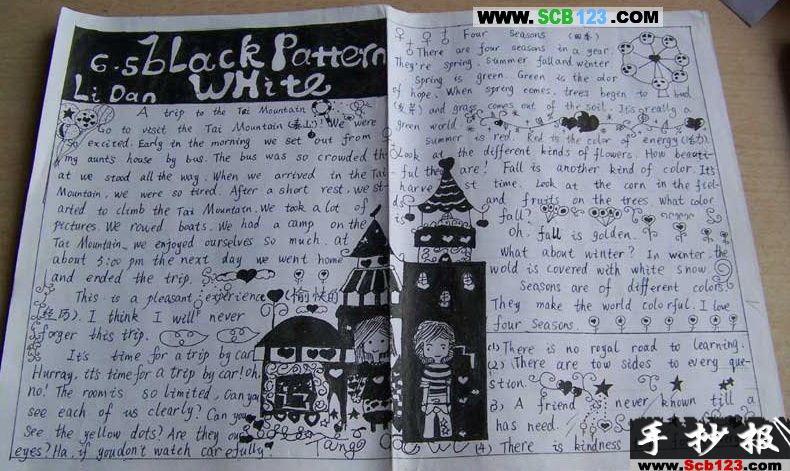 www.SCB123.com
6.5 bLack Pattern
WHite
Li Dan
A trip to the Tai Mountain
Go to visit the Tai Mountain (泰山). We were
so excited. Early in the morning we set out from
my aunts house by bus. The bus was so crowded th
at we stood all the way. When we arrived in the Tai
Mountain, we were so tired. After a short rest, we st-
arted to climb the Tai Mountain. We took a lot of
pictures. We rowed boats. We had a camp on the
Tai Mountain, we enjoyed ourselves so much. at
about 3:00 pm the next day we went home
and ended the trip.
This is a pleasant experience (愉快的
). I think I will never
forger this trip.
It's time for a trip by car
Hurray, it's time for a trip by car! oh,
no! The room is so limited, Can you
see each of us clearly? Can you
see the yellow dots? Are they ou
eyes? Ha, if you don't watch carefully
Tang
Four Seasons (四季)
There are four seasons in a year.
They're spring, summer fall and winter
Spring is green. Green is the color
of hope. When spring comes, trees begin to bud
(发芽) and grass comes out of the soil. It's really a
green world.
Summer is red. Red is the color of energy (活力).
Look at the different kinds of flowers. How beauti-
ful they are! Fall is another kind of color. It's
harvest time. Look at the corn in the fiel-
ds and fruits on the trees. What color
is fall?
Oh, fall is golden.
What about winter? In winter, the
wold is covered with white snow.
Seasons are of different colors.
They make the world colorful. I love
four seasons.
(1) There is no royal road to learning.
(2) There are tow sides to every que-
stion.
(3) A friend is never known till a
has need.
(4) There is kindness
手抄报
www.Scb123.com